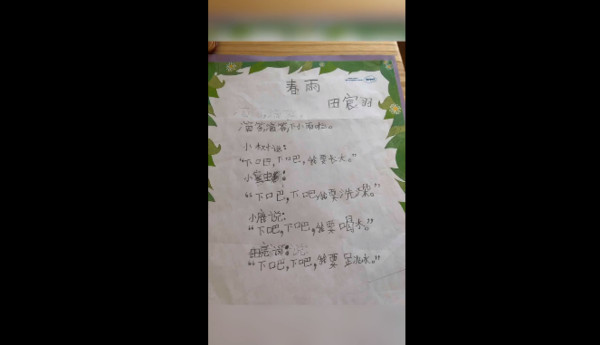 春雨
田官羽
滴答滴答,下小雨啦。
小树说:
"下吧,下吧,我要长大。"
小
"下吧,下吧,我要洗澡。"
小 说:
"下吧,下吧,我要喝水。"
说:
"下吧,下吧,我要 水。"